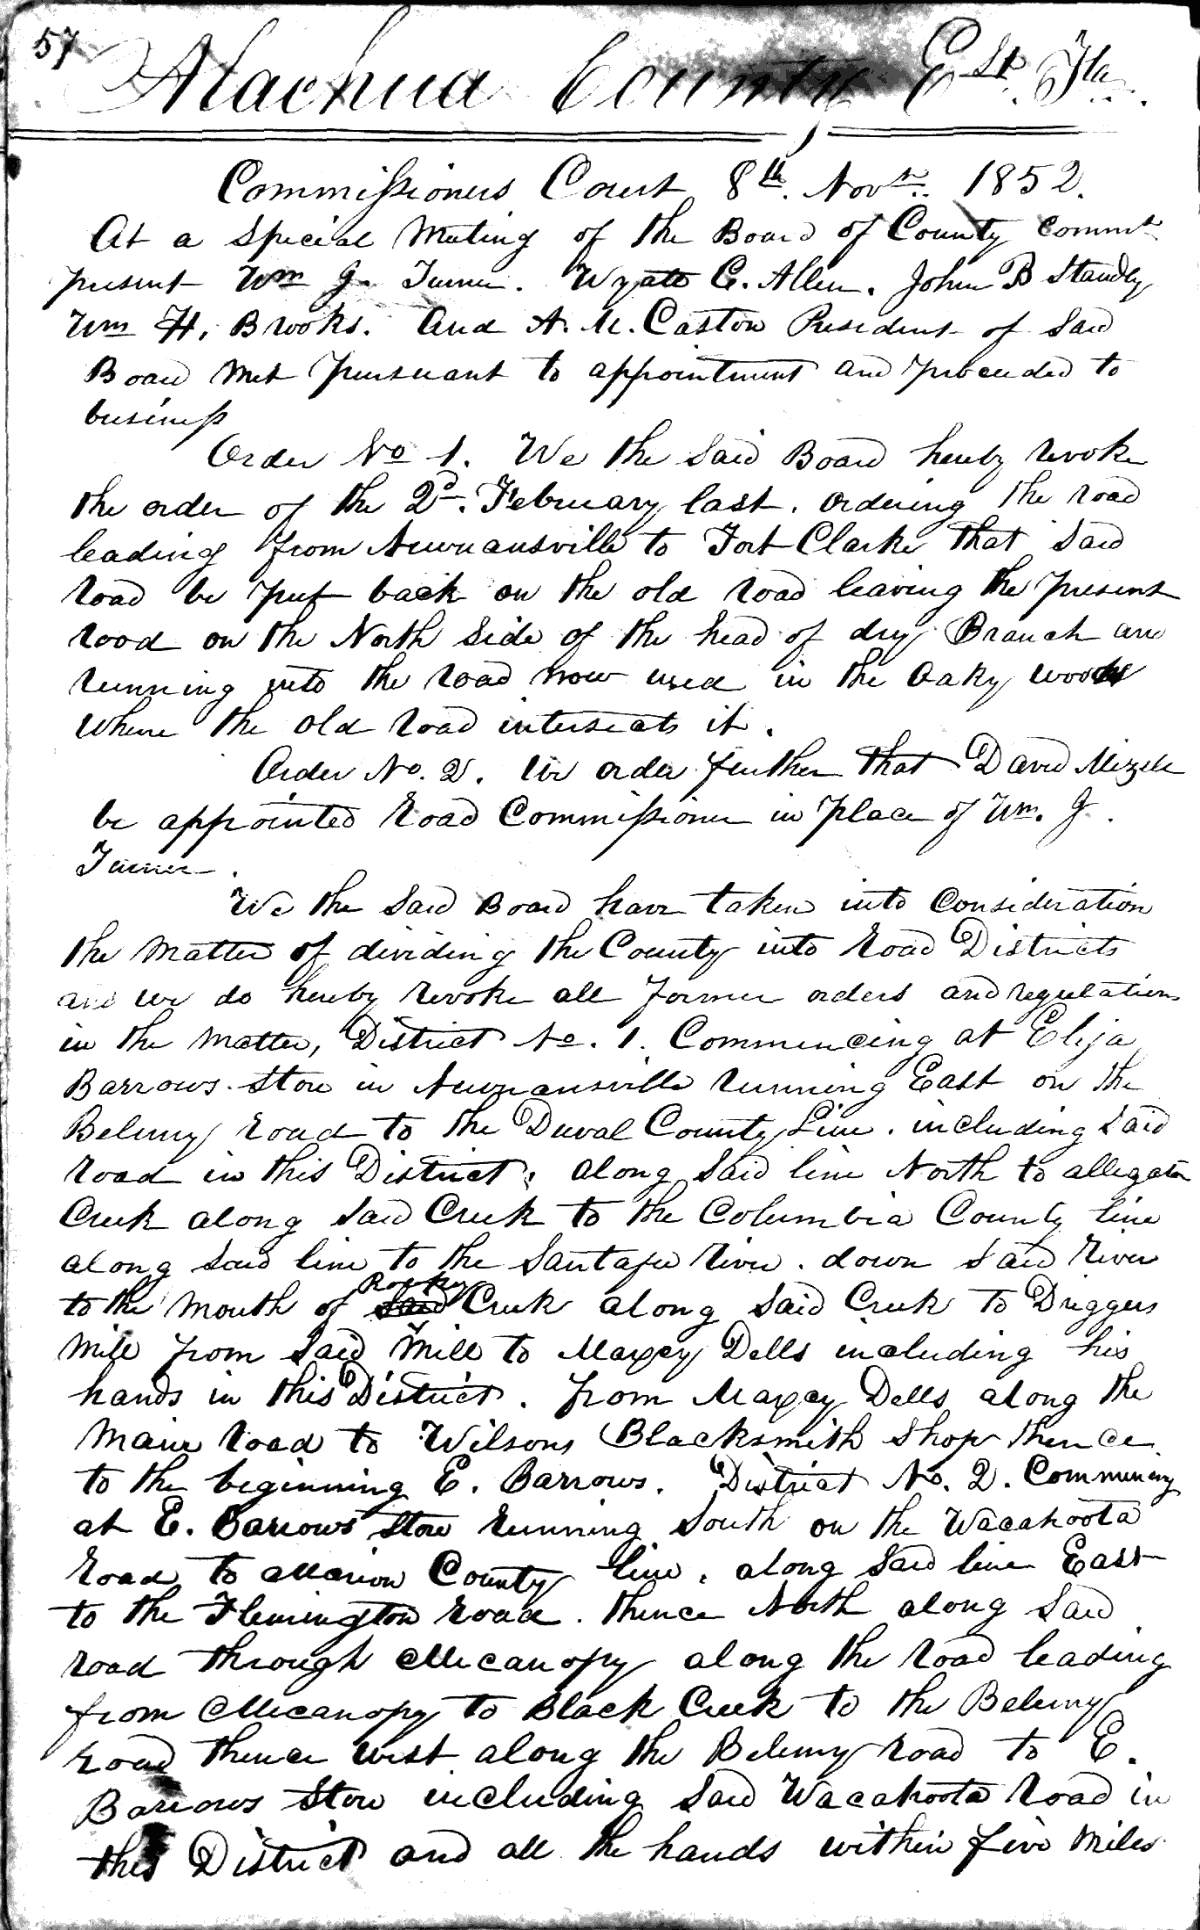 57
Alachua County Est. Fla.
Commissioners Court 8th. Novr. 1852.
At a Special Meeting of the Board of County Commrs
present Wm J. Turner. Wyatt C. Allen. John B Standly
Wm H. Brooks. And A. M. Caston President of Said
Board Met pursuant to appointment and proceeded to
business
Order No 1. We the Said Board hereby revoke
the order of the 2d. February last. ordering the road
leading from Newnansville to Fort Clarke that Said
road be put back on the old road leaving the present
rood on the North Side of the head of dry Branch and
running into the road now used in the oaky woods
where the old road interseats it.
Order No. 2. We order further that David Mizele
be appointed road Commissioner in place of Wm. J.
Turner.
We the Said Board have taken into Consideration
the matter of dividing the County into road Districts
and we do hereby revoke all former orders and regulations
in the matter, District No. 1. Commencing at Elija
Barrows Store in Newnansville running East on the
Belemy road to the Duval County Line. including Said
road in this District, along Said line North to allegator
Creek along Said Creek to the Columbia County line
along Said line to the Santafee River. down Said River
to the Mouth of Rocky Creek along Said Creek to Driggers
Mill from Said Mill to Maxey Dells including his
hands in this District. from Maxey Dells along the
Main road to Wilsons Blacksmith Shop thence
to the beginning E. Barrows. District No. 2. Commencing
at E. Barrows Store running South on the Wacahoota
road to Marion County line, along Said line East
to the Flemington road. thence North along Said
road through Micanopy along the road leading
from Micanopy to Black Creek to the Belemy
road thence west along the Belemy road to E.
Barrows Store including Said Wacahoota road in
this District and all the hands within five Miles